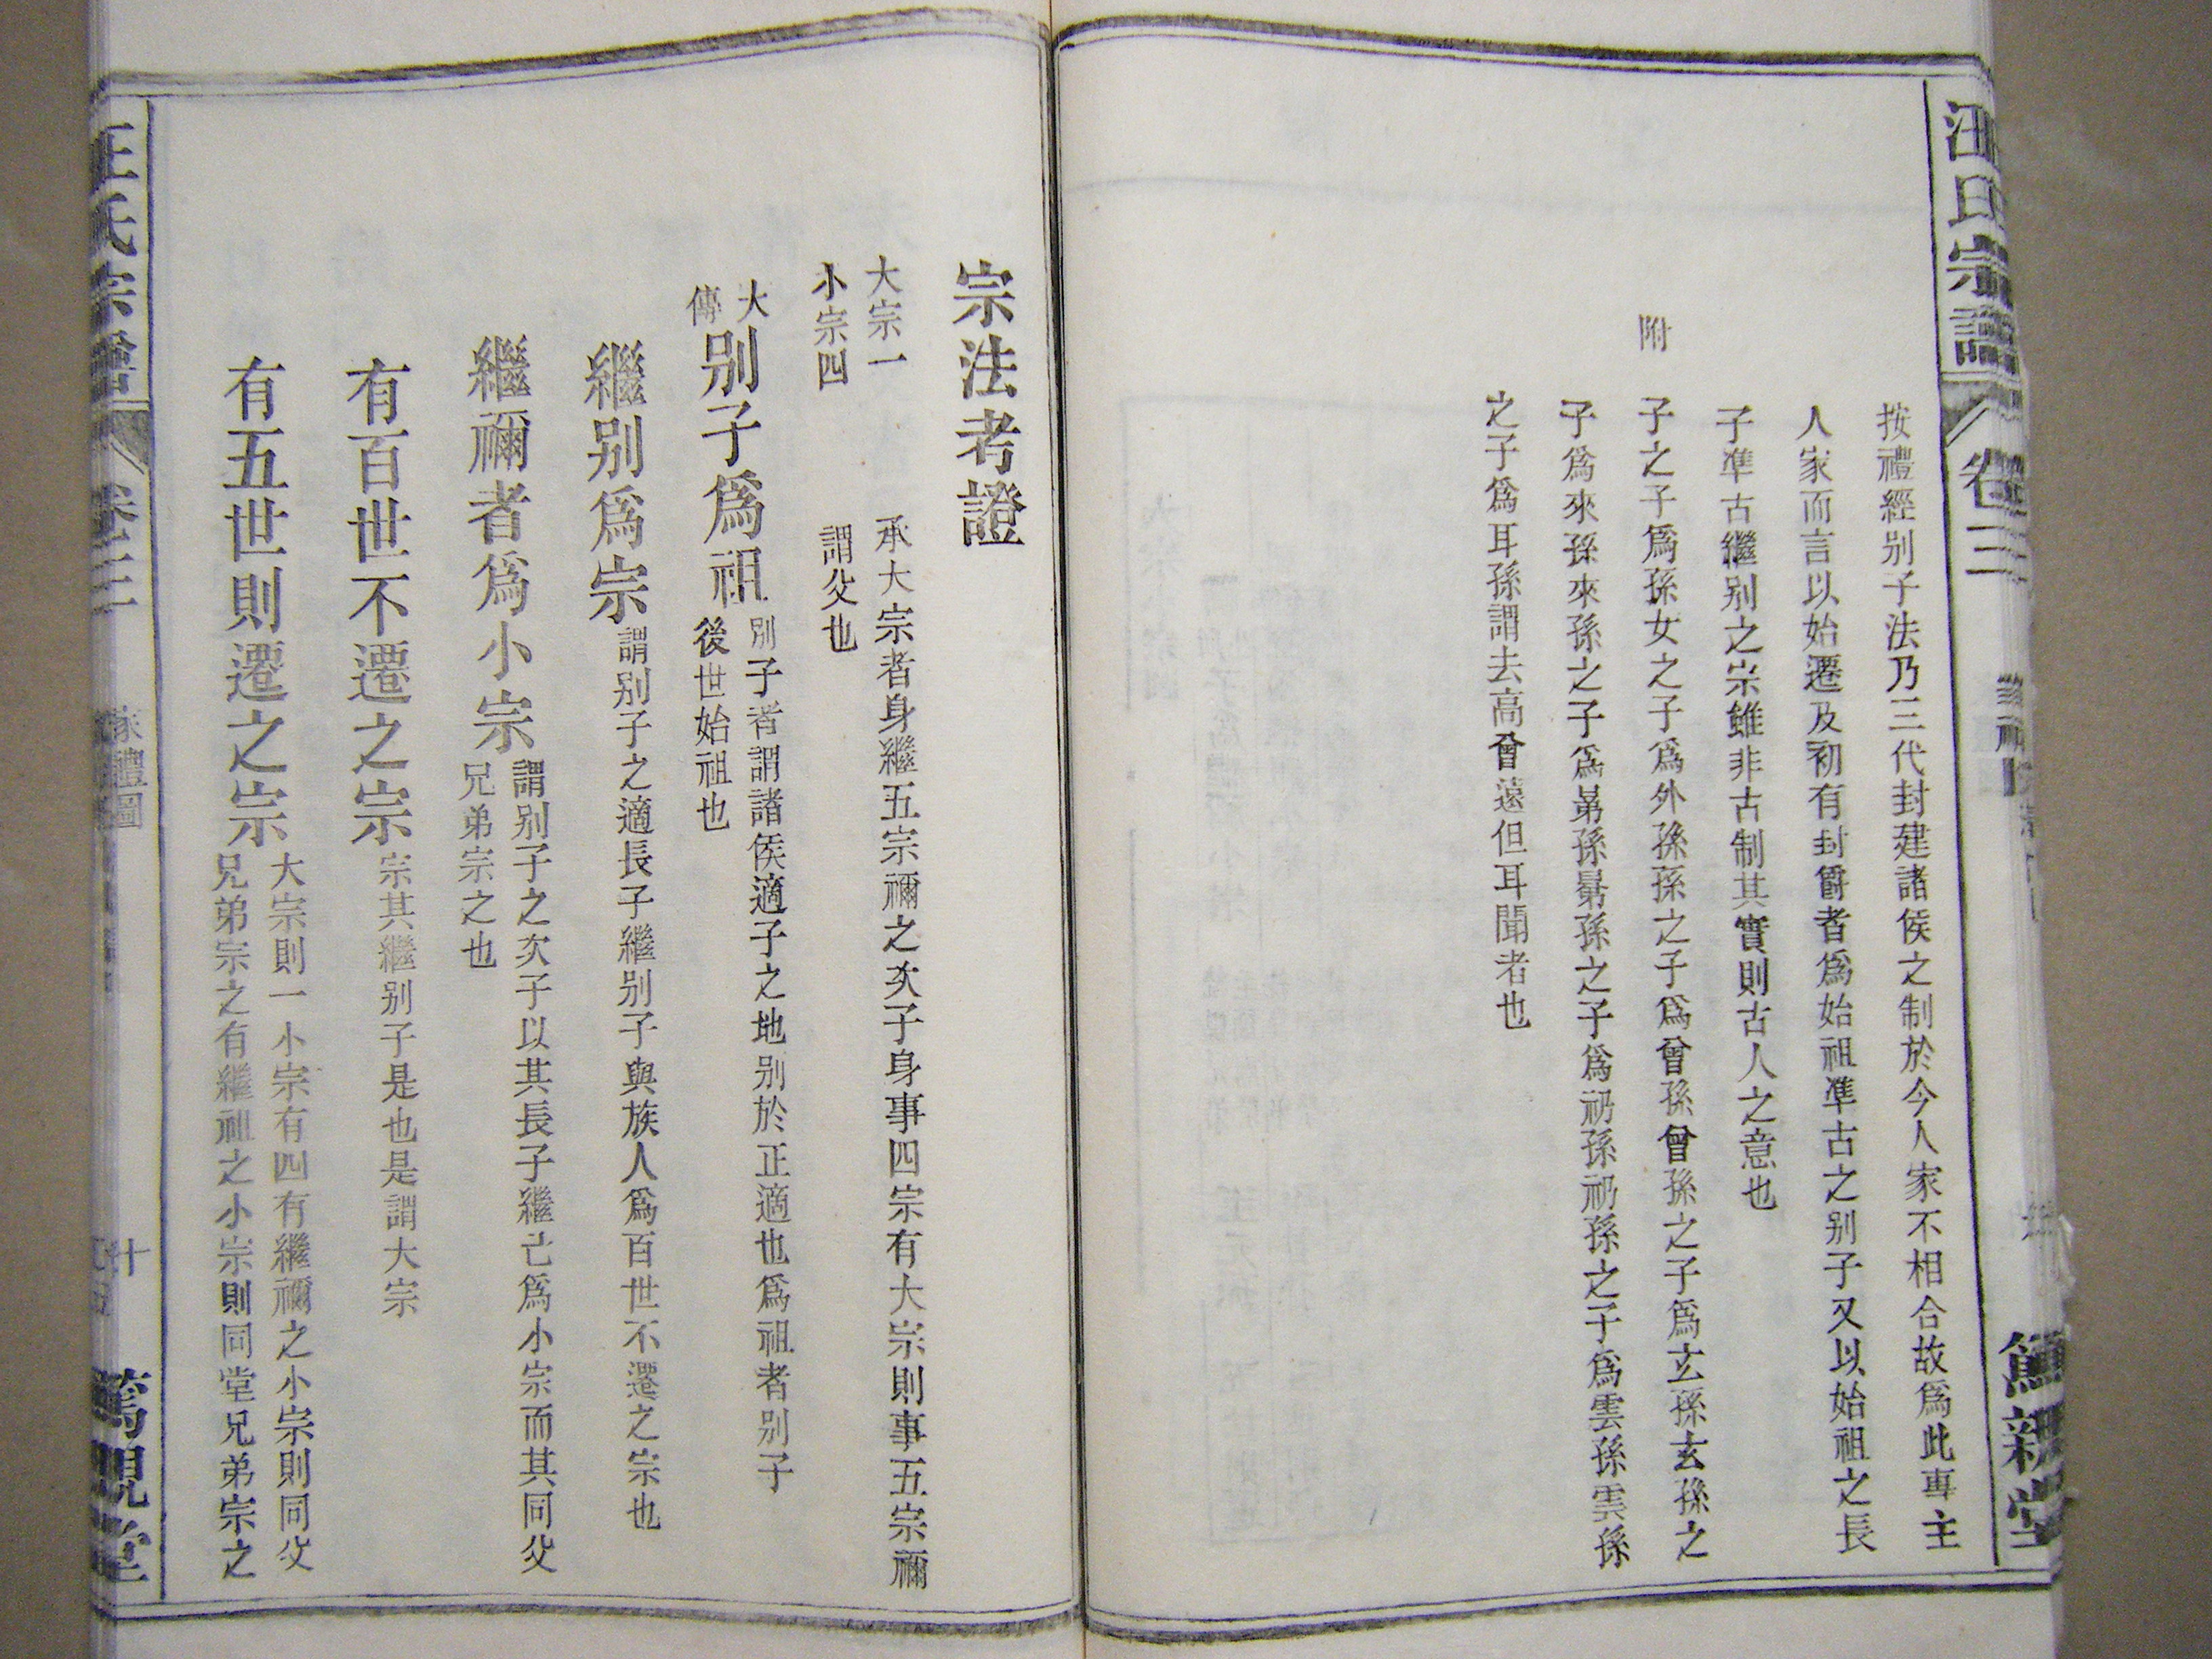 汪氏宗譜
卷三
篤親堂
按禮經别子法乃三代封建諸侯之制於今人家不相合故爲此專主
人家而言以始遷及初有封爵者爲始祖凖古之别子又以始祖之長
子凖古繼别之宗雖非古制其實則古人之意也
附
子之子爲孫女之子爲外孫孫之子爲曾孫曾孫之子爲玄孫玄孫之
子爲來孫來孫之子爲晜孫晜孫之子爲礽孫礽孫之子爲雲孫雲孫
之子爲耳孫謂去高曾遠但耳聞者也
宗法考證
大宗一
小宗四
承大宗者身繼五宗禰之次子身事四宗有大宗則事五宗禰
謂父也
大傳
别子爲祖
别子者謂諸侯適子之地别於正適也爲祖者别子
後世始祖也
繼别爲宗
謂别子之適長子繼别子與族人爲百世不遷之宗也
繼禰者爲小宗
謂别子之次子以其長子繼己爲小宗而其同父
兄弟宗之也
有百世不遷之宗
宗其繼别子是也是謂大宗
有五世則遷之宗
大宗則一小宗有四有繼禰之小宗則同父
兄弟宗之有繼祖之小宗則同堂兄弟宗之
汪氏宗譜
卷三
家禮圖
十
篤親堂